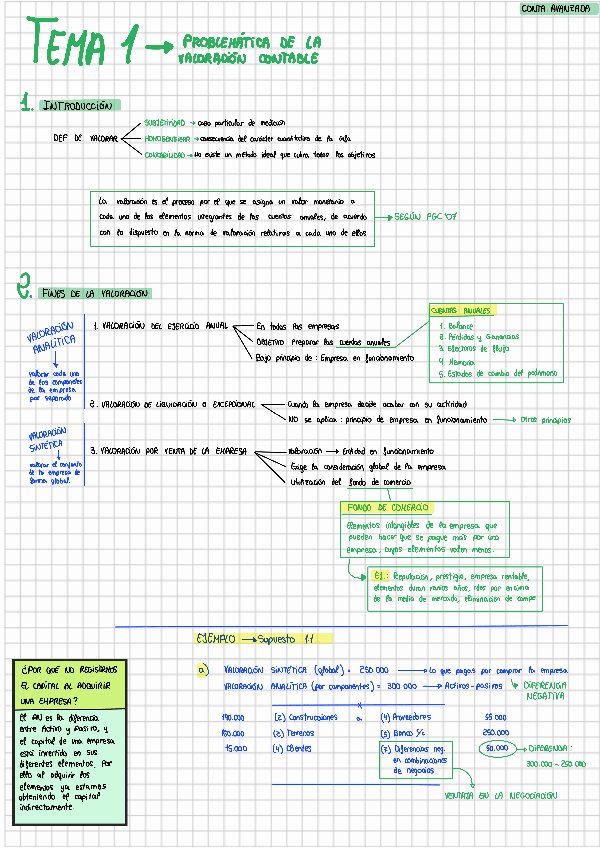 CONTA AVANZADA
TEMA 1 → PROBLEMÁTICA DE LA
VALORACIÓN CONTABLE
1. INTRODUCCIÓN
DEF DE VALORAR
SUBJETIVIDAD → caso particular de medición
HOMOGENEIZAR → consecuencia del carácter cuantitativo de la
CONTABILIDAD → no existe un método ideal que cubra todos los objetivos
La valoración es el proceso por el que se asigna un valor monetario a
cada uno de los elementos integrantes de las cuentas anuales, de acuerdo
con lo dispuesto en la norma de valoración relativas a cada uno de ellos
→ SEGÚN PGC'07
2. FINES DE LA VALORACIÓN
VALORACIÓN
ANALÍTICA
valorar cada uno
de los componentes
de la empresa
por separado
1. VALORACIÓN DEL EJERCICIO ANUAL
En todas las empresas
OBJETIVO preparar las cuentas anuales
Bajo principio de: Empresa en funcionamiento
CUENTAS ANUALES
1. Balance
2. Pérdidas y Ganancias
3. Efectivos de flujo
4. Memoria
5. Estados de cambio del patrimonio
2. VALORACIÓN DE LIQUIDACIÓN O EXCEPCIONAL
Cuando la empresa decide acabar con su actividad
NO se aplica: principio de empresa en funcionamiento → Otros principios
VALORACIÓN
SINTÉTICA
valorar el conjunto
de la empresa de
forma global
3. VALORACIÓN POR VENTA DE LA EMPRESA
Valoración → Entidad en funcionamiento
Exige la consideración global de la empresa
Utilización del fondo de comercio
FONDO DE COMERCIO
Elementos intangibles de la empresa que
pueden hacer que se pague más por una
empresa, cuyos elementos valen menos.
EJ.: Reputación, prestigio, empresa rentable,
elementos duran varios años, por encima
de la media de mercado, eliminación de compe
EJEMPLO → Supuesto 1.1
¿POR QUÉ NO REGISTRAMOS
EL CAPITAL AL ADQUIRIR
UNA EMPRESA?
El PN es la diferencia
entre Activo y Pasivo, y
el capital de una empresa
está invertido en sus
diferentes elementos. Por
ello al adquirir los
elementos ya estamos
obteniendo el capital
indirectamente.
a) VALORACIÓN SINTÉTICA (global) = 250.000 → Lo que pagas por comprar la empresa
VALORACIÓN ANALÍTICA (por componentes) = 300.000 → Activos - pasivos
DIFERENCIA
NEGATIVA
190.000 (2) Construcciones a (4) Proveedores 55.000
150.000 (2) Terrenos (5) Banco c/c 250.000
15.000 (4) Clientes (7) Diferencias neg. 50.000 → DIFERENCIA:
en combinaciones
de negocios
300.000 - 250.000
VENTAJA EN LA NEGOCIACIÓN